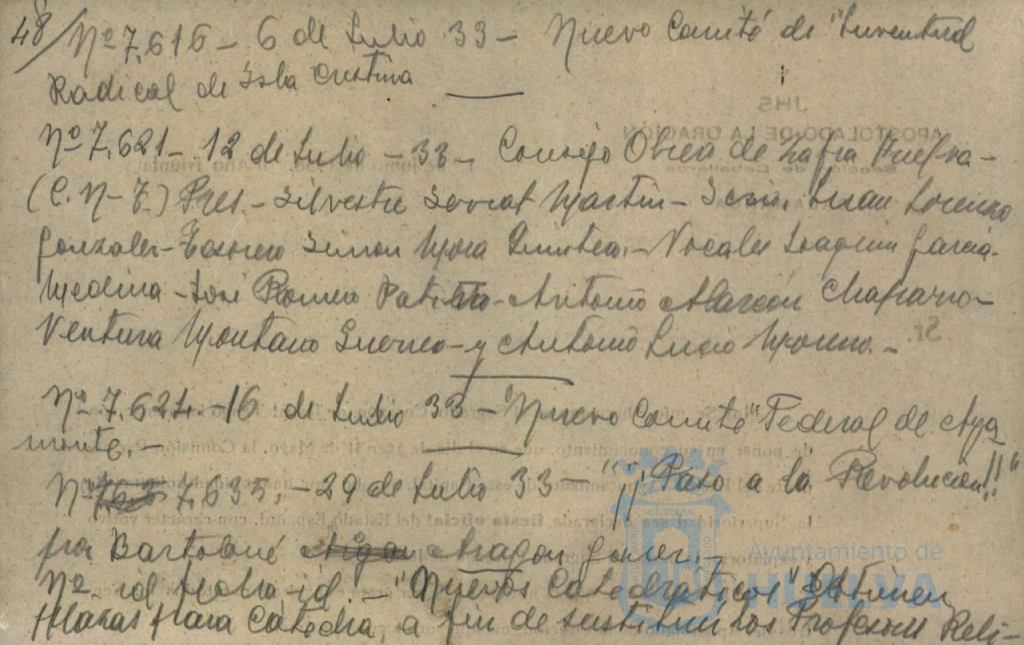 48/ Nº 7,616 - 6 de Julio 33 - Nuevo Comité de "Juventud
Radical de Isla Cristina
Nº 7,621 - 12 de Julio - 33 - Consejo Obrero de Zafra Huelva -
(C. N - T.) Pres. - Silvestre Martin - Juan Lorenzo
Gonzalez - Tesorero Simon Mora - Vocales Joaquin Garcia -
Medina - José Romero Patiño - Antonio Alarcón Chaparro -
Ventura Montaño Guerrero - y Antonio Lucio Moreno. -
Nº 7,624. - 16 de Julio 33 - "Nuevo Comité" Federal de Aya
monte. -
Nº 7,635, - 29 de Julio 33 - "¡¡Paso a la Revolución!!"
por Bartolomé Aragon Gomez, -
Nº id fecha id. - "Nuevos Catedraticos" Obtienen
Plazas para Catedra, a fin de sustituir los Profesores Reli-
JHS
APOSTOLADO DE LA ORACIÓN
Sr.
Ayuntamiento de
HUELVA